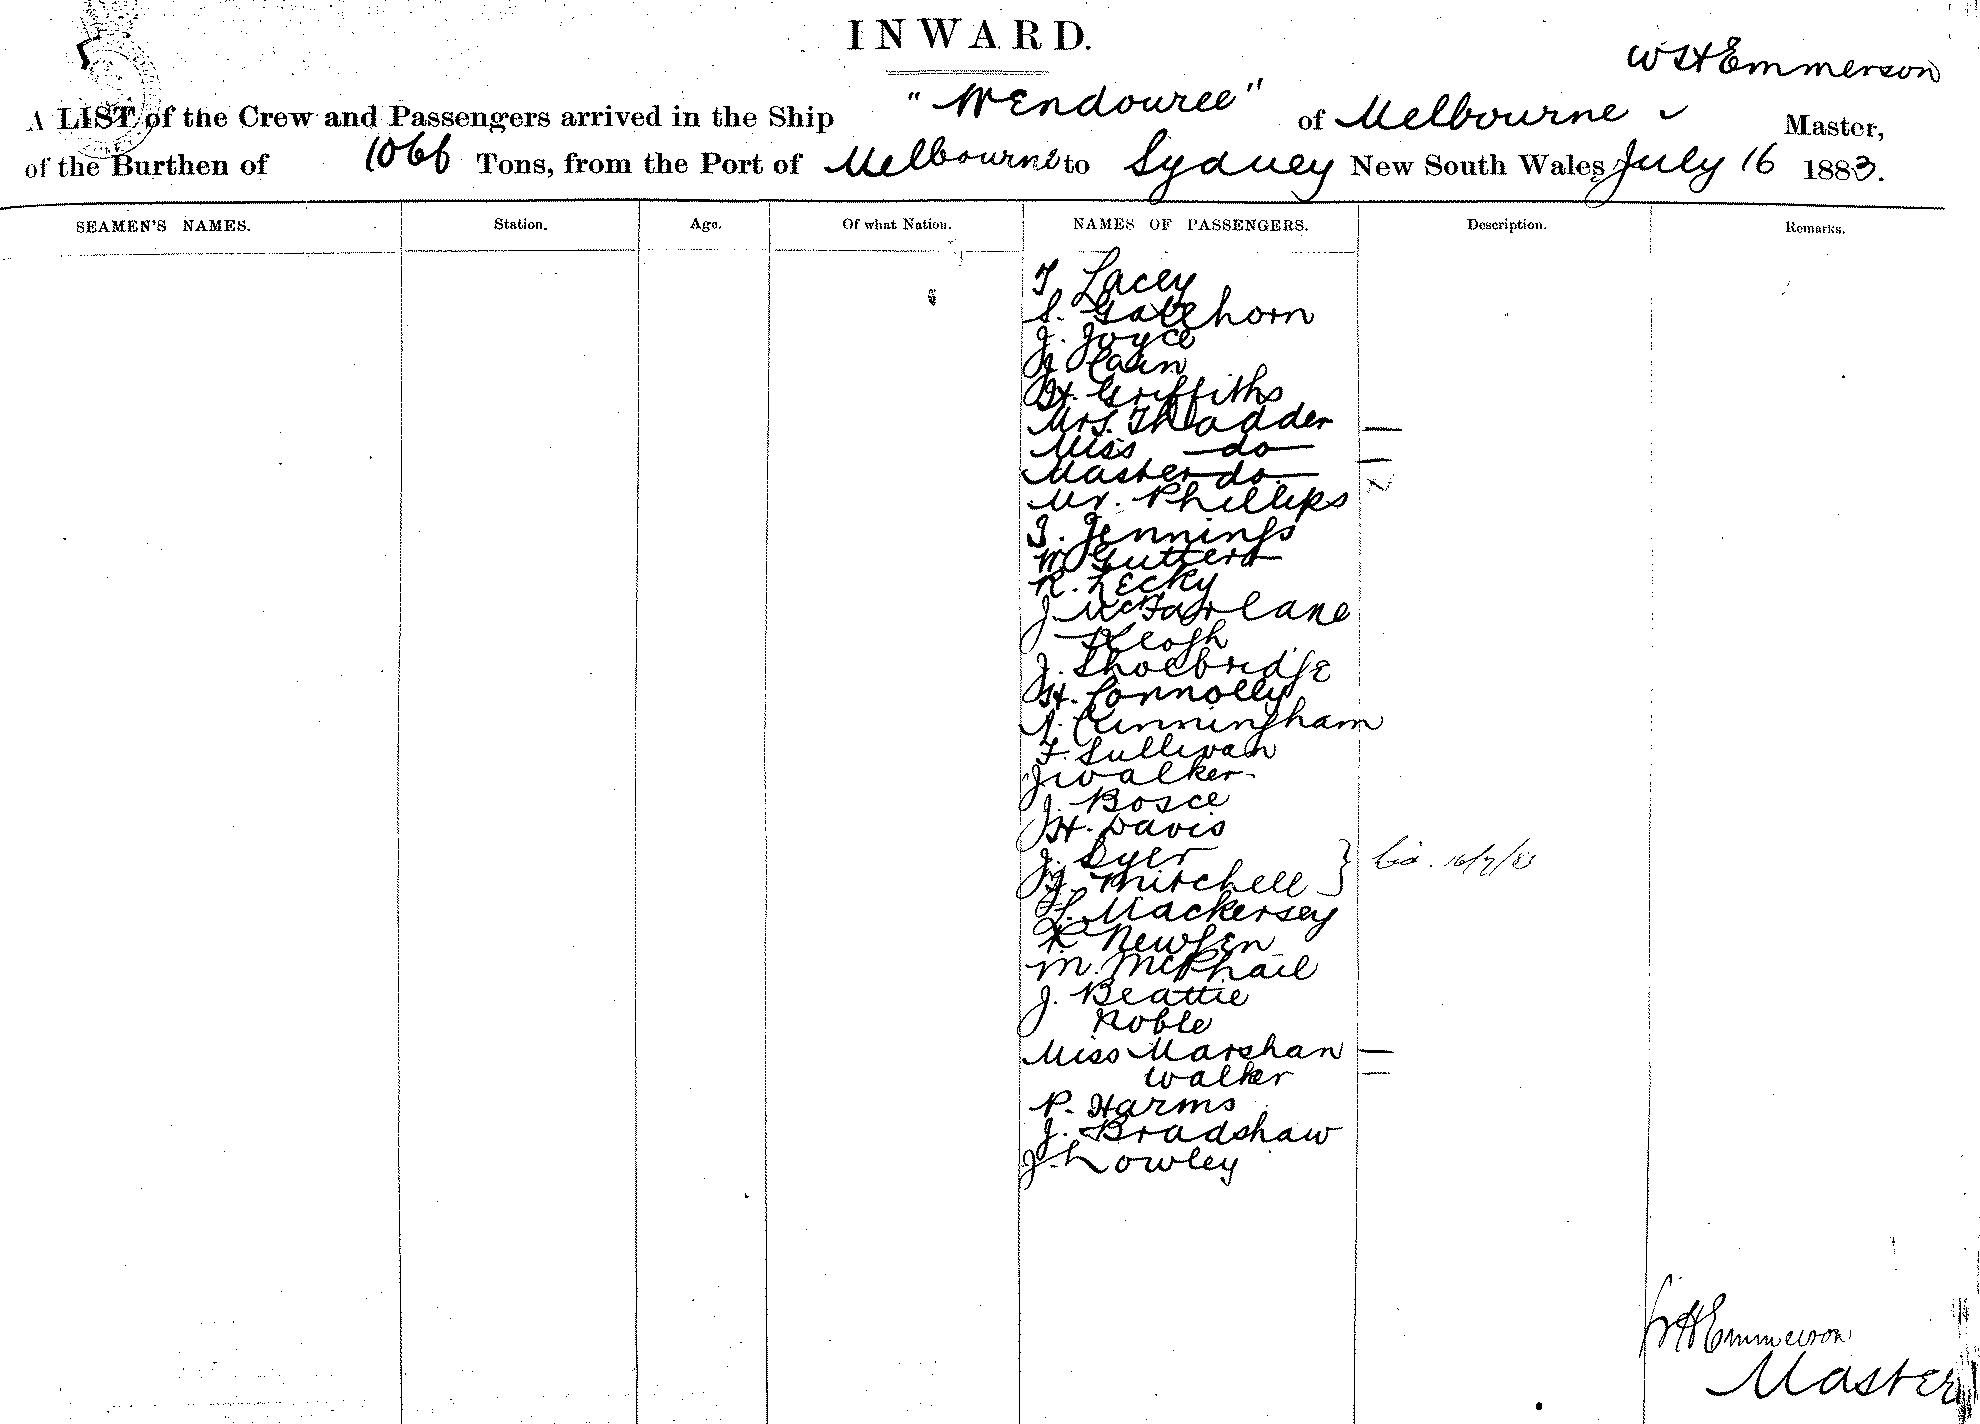 INWARD.
W H Emmerson
A LIST of the Crew and Passengers arrived in the Ship "Wendouree" of Melbourne Master,
of the Burthen of 1066 Tons, from the Port of Melbourne to Sydney New South Wales, July 16 1883.
SEAMEN'S NAMES. Station. Age. Of what Nation. NAMES OF PASSENGERS. Description. Remarks.
T. Lacey
S. Gatehorn
J. Joyce
J Cain
H. Griffiths
Mrs.
Miss do
Master do
Mr. Phillips
J. Jennings
W
R. Lecky
J McFarlane
J. Shoebridge
H. Connolly
Cunningham
F. Sullivan
J Walker
J. Bosce
H. Davis
J. Dyer
J. Mitchell 16/7/83
Mackersey
R Newgen
M. McPhail
J. Beattie
Noble
Miss Marshan
Walker
P. Harms
J. Bradshaw
J. Lowley
W H Emmerson
Master